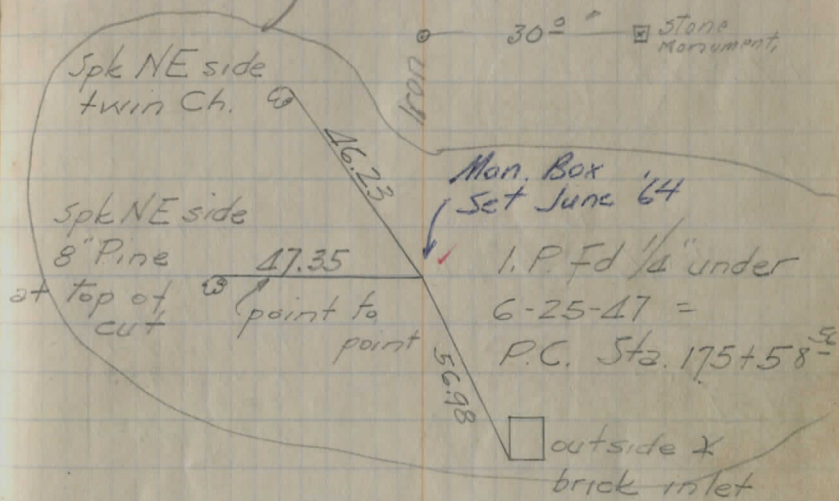 30⁰
stone
monument,
Iron
Spk NE side
twin Ch.
46.23
Mon. Box
Set June '64
Spk NE side
8" Pine
at top of
cut
47.35
point to
point
I.P. Fd 1/4" under
6-25-47 =
P.C. Sta. 175+58
56.98
outside
brick inlet